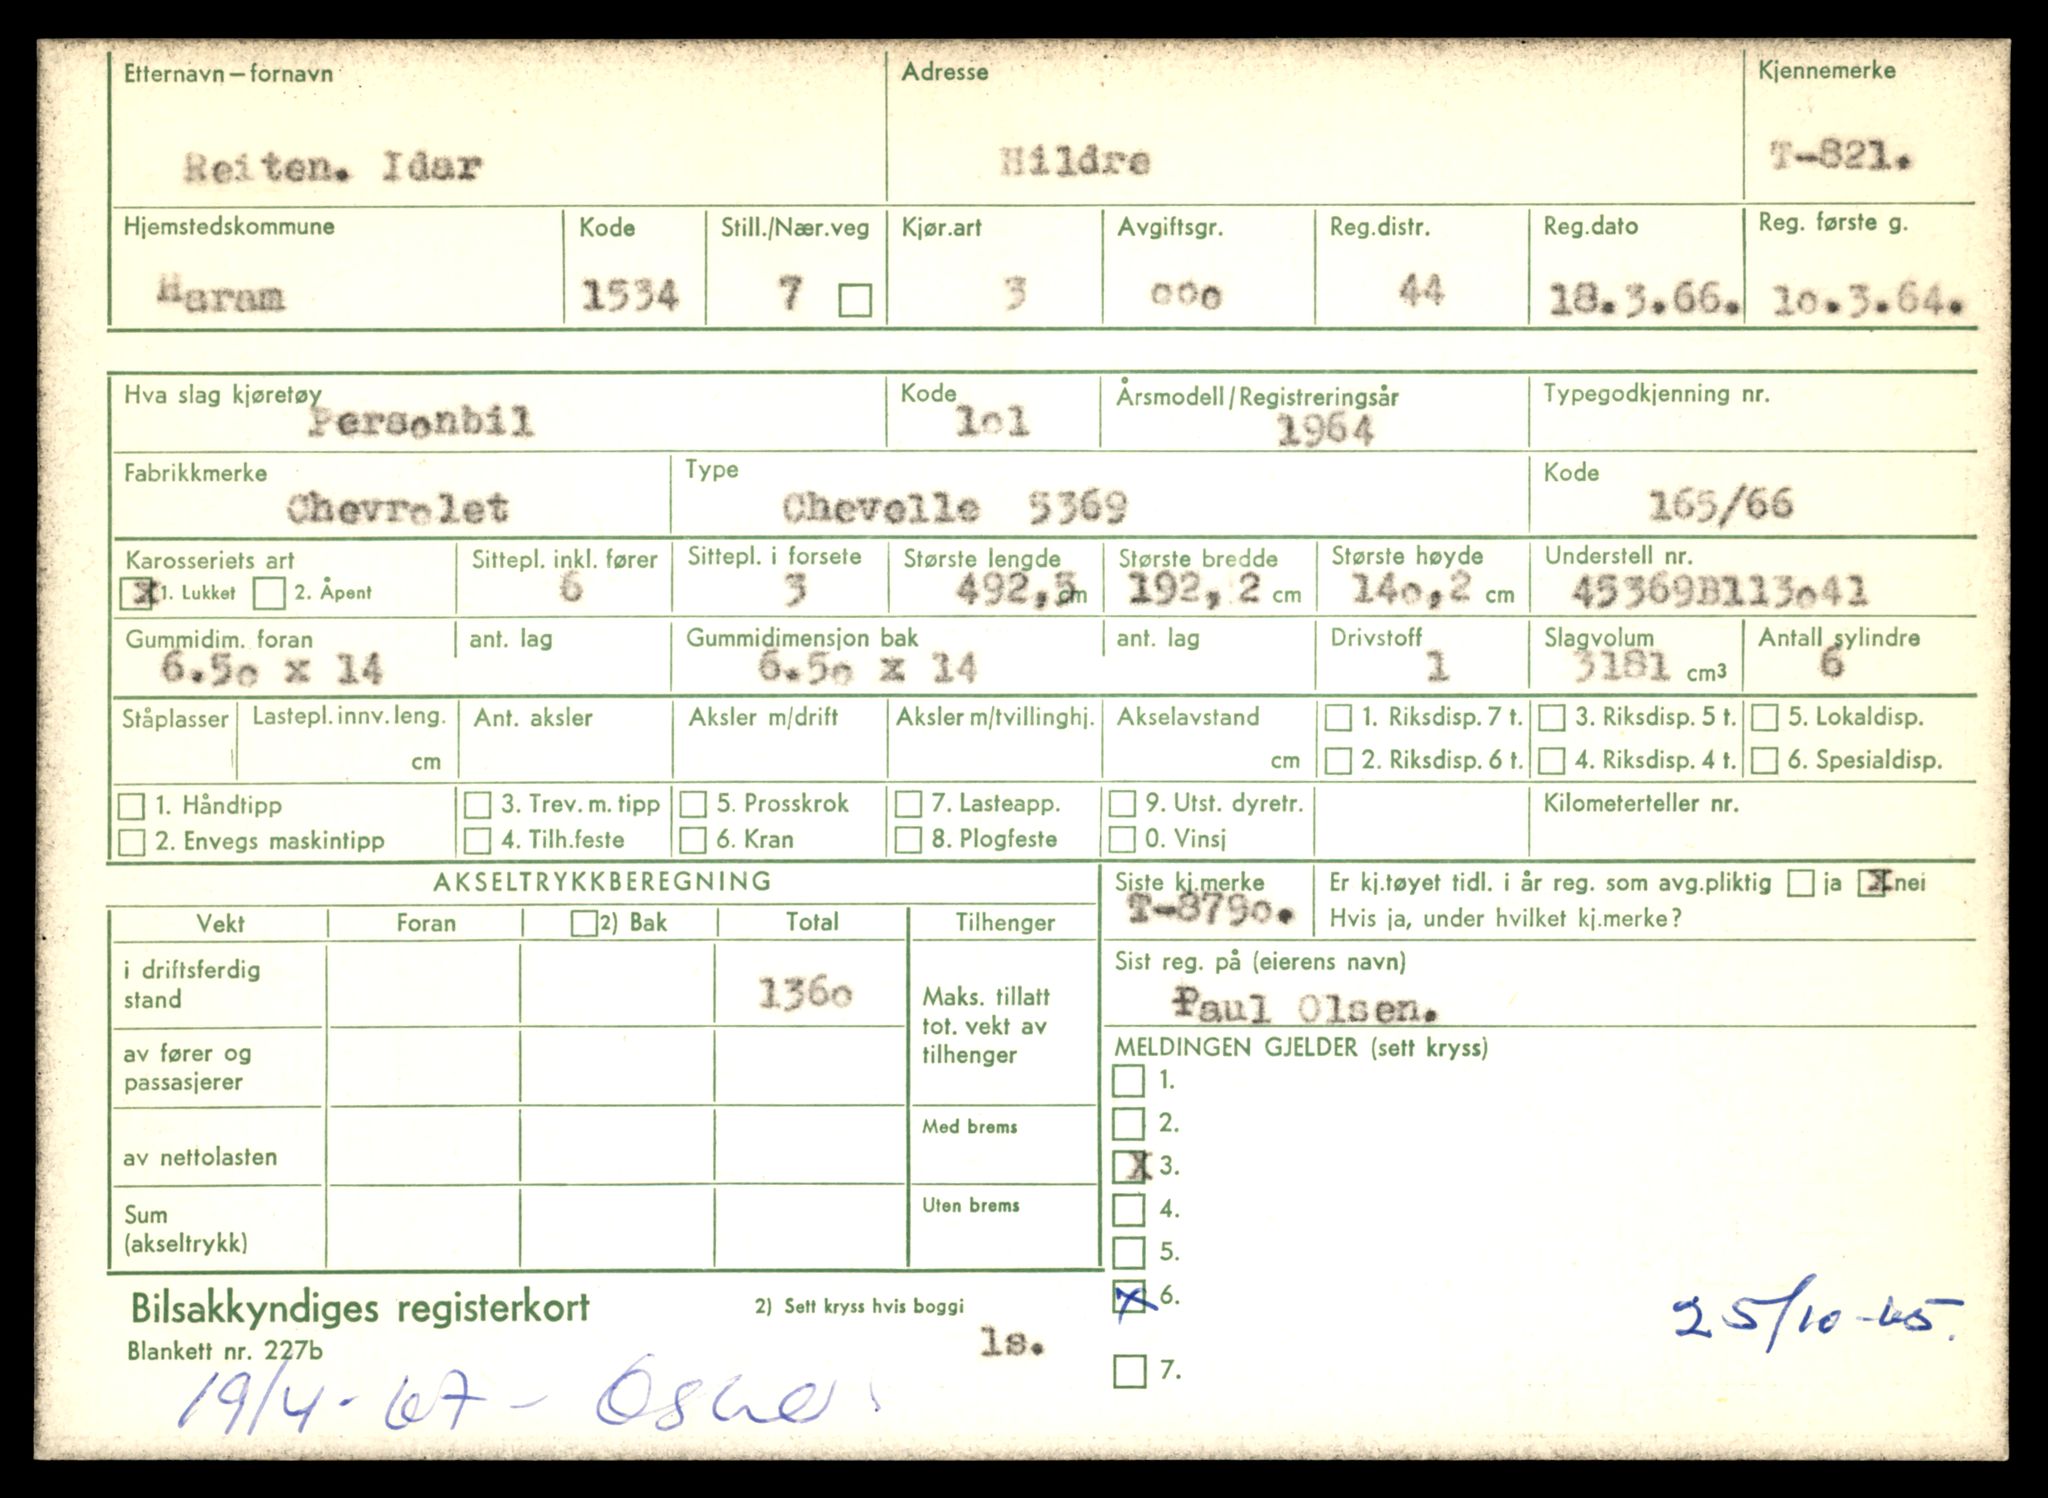 Etternavn – fornavn Adresse Kjennemerke
Reiten. Idar Hildre T-821.
Hjemstedskommune Kode Still./Nær.veg Kjør.art Avgiftsgr. Reg.distr. Reg.dato Reg. første g.
Haram 1534 7 3 ooo 44 18.3.66. 1o.3.64.
Hva slag kjøretøy Kode Årsmodell/Registreringsår Typegodkjenning nr.
Personbil 1o1 1964
Fabrikkmerke Type Kode
Chevrolet Chevelle 5369 165/66
Karosseriets art Sittepl. inkl. fører Sittepl. i forsete Største lengde Største bredde Største høyde Understell nr.
X 1. Lukket 2. Åpent 6 3 492,5 cm 192,2 cm 14o,2 cm 45369B113o41
Gummidim. foran ant. lag Gummidimensjon bak ant. lag Drivstoff Slagvolum Antall sylindre
6.5o x 14 6.5o x 14 1 3181 cm3 6
Ståplasser Lastepl. innv. leng. Ant. aksler Aksler m/drift Aksler m/tvillinghj. Akselavstand 1. Riksdisp. 7 t. 3. Riksdisp. 5 t. 5. Lokaldisp.
cm cm 2. Riksdisp. 6 t. 4. Riksdisp. 4 t. 6. Spesialdisp.
1. Håndtipp 3. Trev. m. tipp 5. Prosskrok 7. Lasteapp. 9. Utst. dyretr. Kilometerteller nr.
2. Envegs maskintipp 4. Tilh.feste 6. Kran 8. Plogfeste 0. Vinsj
AKSELTRYKKBEREGNING Siste kj.merke Er kj.tøyet tidl. i år reg. som avg.pliktig ja X nei
T-879o.
Vekt Foran 2) Bak Total Tilhenger Hvis ja, under hvilket kj.merke?
i driftsferdig Sist reg. på (eierens navn)
stand 136o Maks. tillatt Paul Olsen.
tot. vekt av
av fører og tilhenger MELDINGEN GJELDER (sett kryss)
passasjerer 1.
Med brems 2.
av nettolasten X 3.
Sum Uten brems 4.
(akseltrykk) 5.
Bilsakkyndiges registerkort 2) Sett kryss hvis boggi X 6. 25/10-65.
Blankett nr. 227b ls.
7.
19/4-67 -